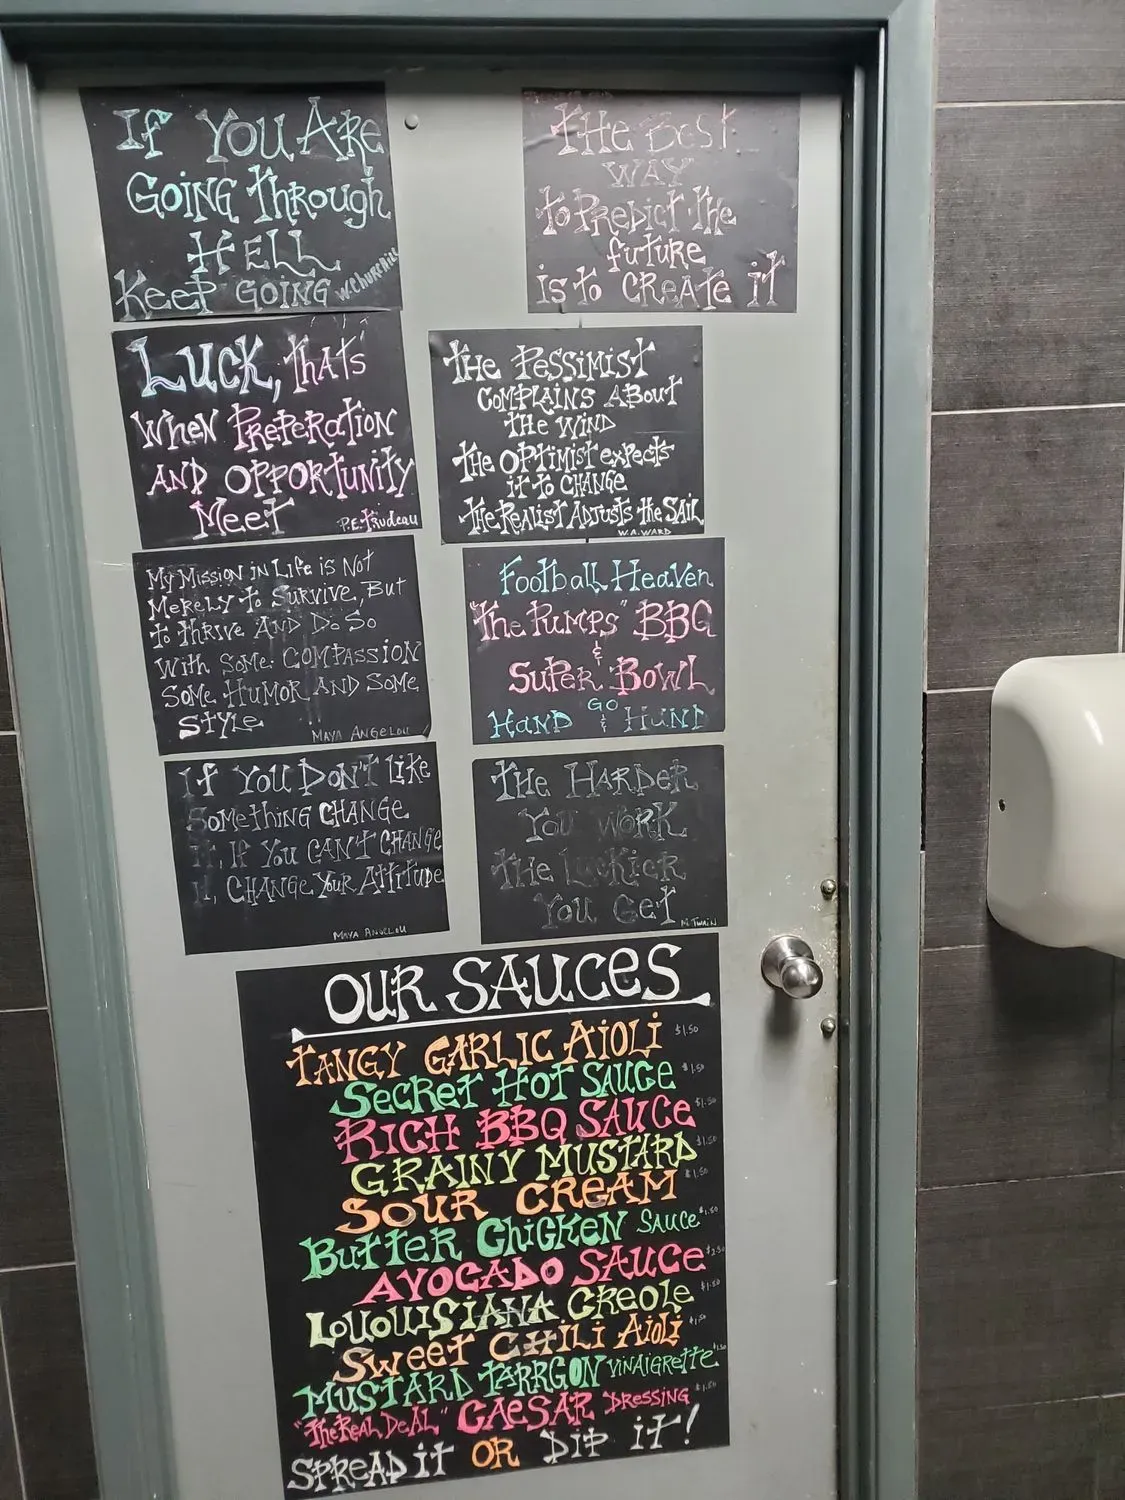 If You Are
Going through
HELL
Keep GOING
W. Churchill
the Best
WAY
to Predict the
future
is to CREAte it
LUCK, thats
When PREPERAtION
AND OPPORtUNitY
Meet
P.E. trudeau
the PessiMist
COMPLAiNS ABOUt
tHE WIND
tHE OPtiMist expects
it to CHANGE
the ReAList ADjUSts the SAiL
W.A. WARD
My Mission in Life is Not
MERELY to SURViVE, But
to thRivE AND Do So
With SoMe COMPASSiON
SoME HUMOR AND SoME
StYLe
MAYA ANGELOU
Football Heaven
"the PUMPS" BBQ
&
SUPER BOWL
GO
HAND & HAND
If You Don't Like
SoMething CHANGE
It, If You CAN'T CHANGE
It, CHANGE YOUR Attitude
MAYA ANGELOU
the HARDER
YOU WORK
the Luckier
You Get
M. Twain
OUR SAUCES
TANGY GARLIC AiOLi $1.50
SeCRet Hot SAUCE $1.50
RICH BBQ SAUCE $1.50
GRAINY MUSTARD $1.50
SOUR CREAM $1.50
ButteR CHiCKEN SAUCE $1.50
AVOCADO SAUCE $2.50
LOUOUISiANA CREOLE $1.50
SWEET CHILi AiOLi $1.50
MUSTARD tARRGON ViNAiGREttE $1.50
"the REAL DeAL" CAESAR DRESSiNG $1.50
SPREAD it OR DIP it!